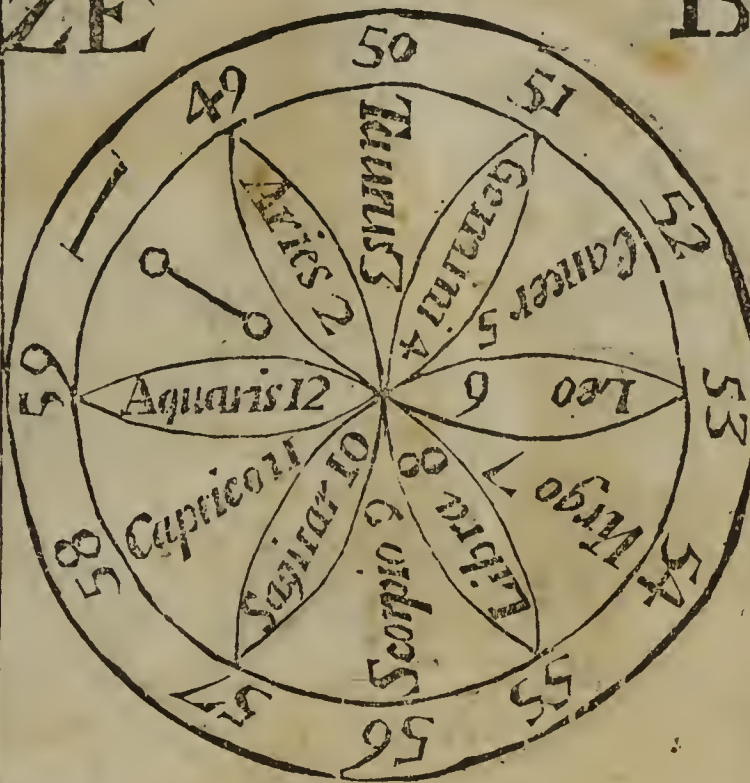 ZE
B
49
50
51
52
53
54
55
56
57
58
59
Aries 2
Taurus 3
Gemini 4
Cancer 5
Leo 6
Virgo 7
Libra 8
Scorpio 9
Sagitar 10
Caprico 11
Aquaris 12